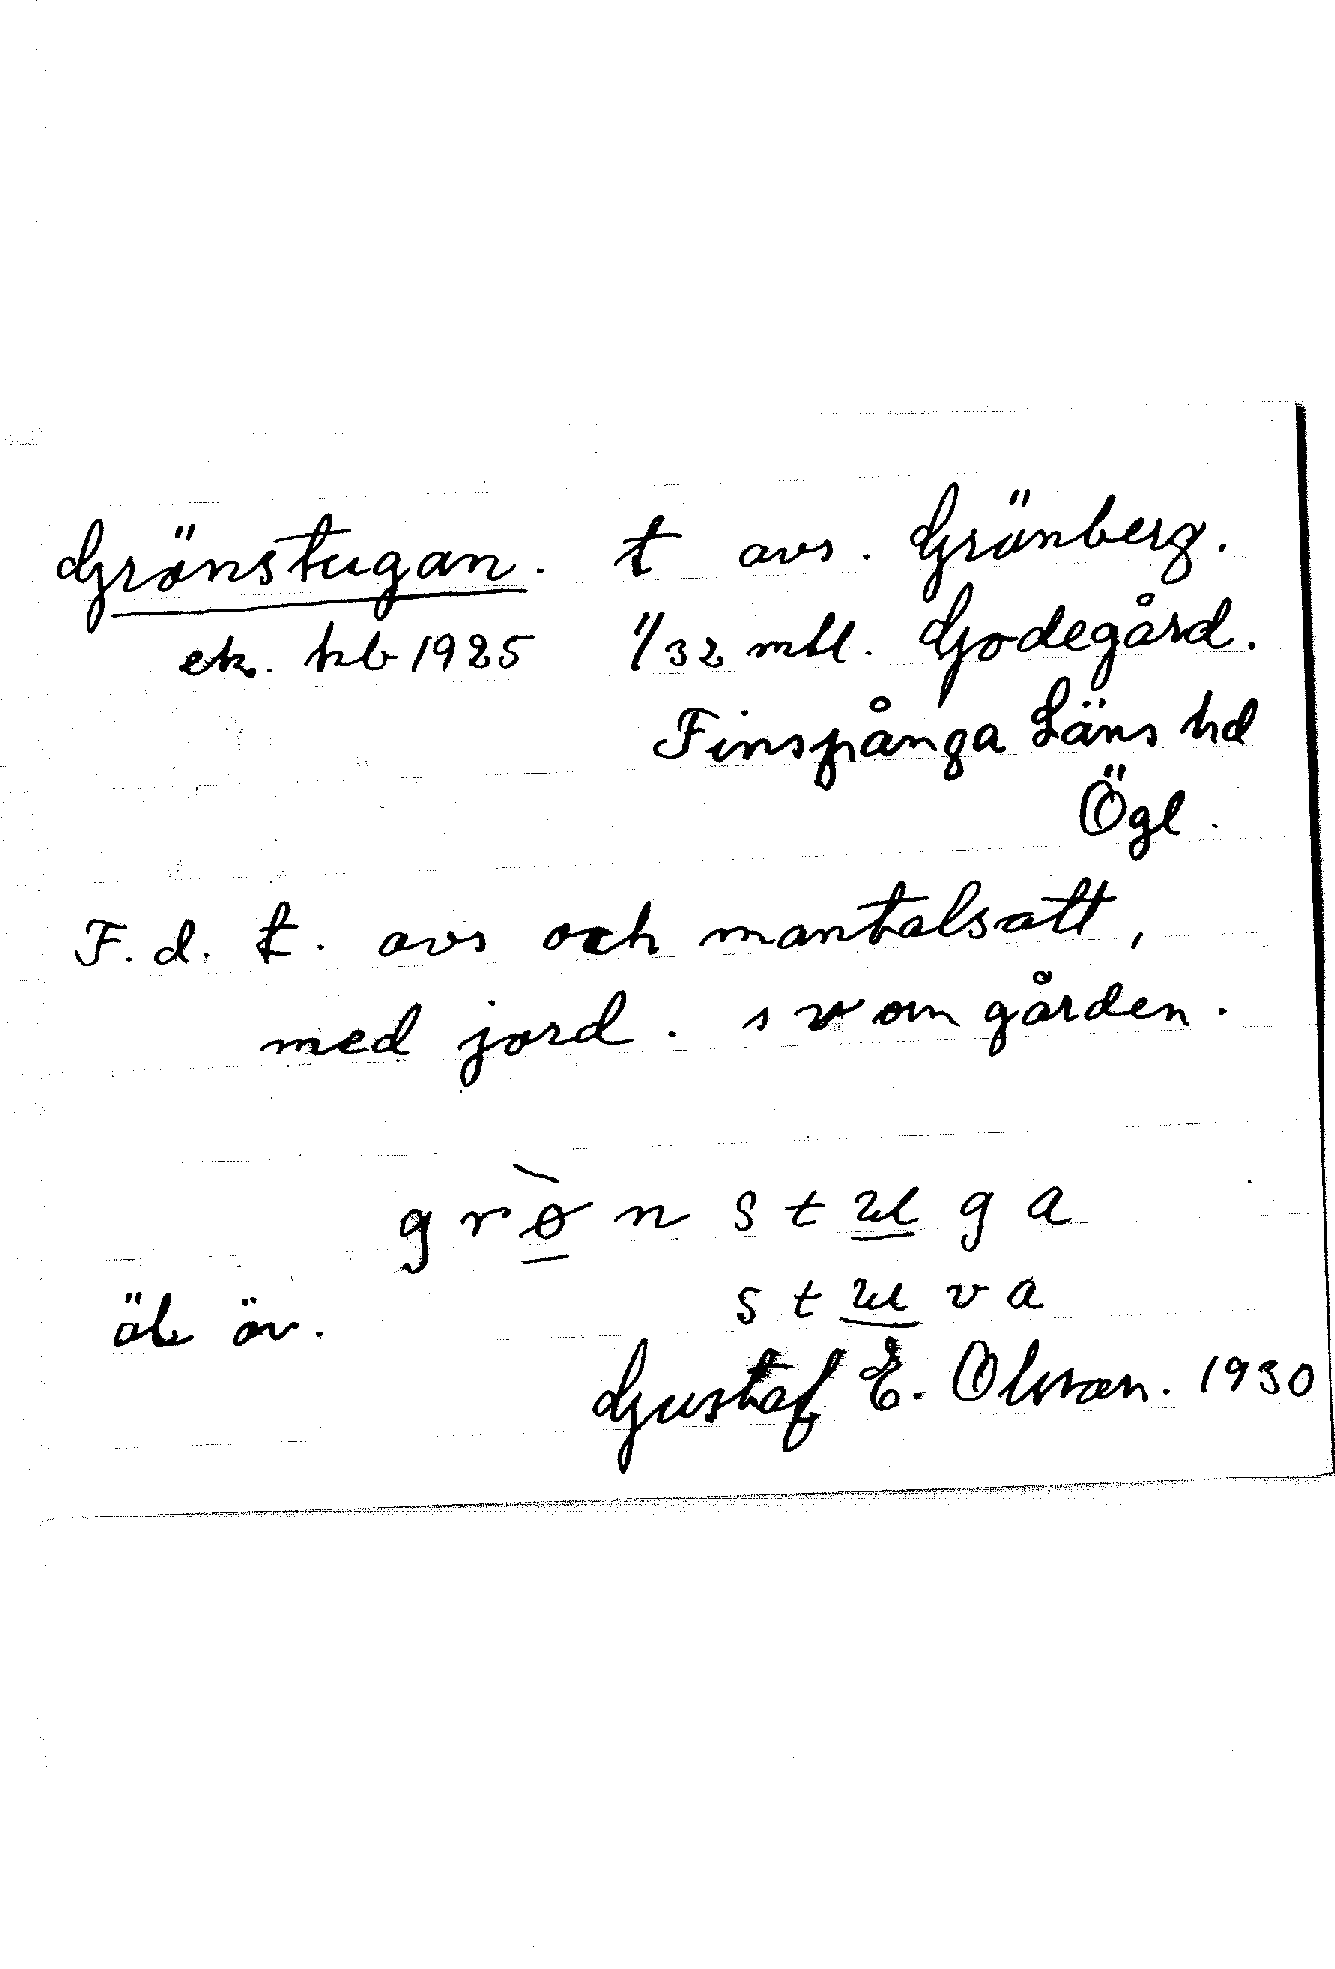 Grönstugan. t avs. Grönberg.
ek. kb 1925 1/32 mtl. Godegård.
Finspånga Läns hd
Ögl.
F. d. t. avs och mantalsatt,
med jord. s v om gården.
grø̀nstuga
äk äv. stuva
Gustaf E. Olsson. 1930